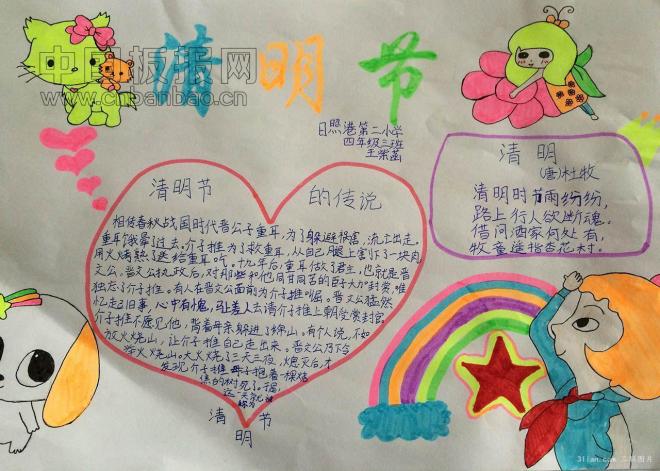 中国板报网
www.cnbanbao.cn
清明节
日照港第二小学
四年级三班
王紫菡
清明节 的传说
相传春秋战国时代晋公子重耳,为了躲避祸害,流亡出走。
重耳饿晕了过去。介子推为了救重耳,从自己腿上割下了一块肉,
用火烤熟了送给重耳吃。十九年后,重耳做了君主,也就是晋
文公,晋文公执政后,对那些和他同甘同苦的臣子大力封赏,唯
独忘了介子推。有人在晋文公面前为介子推叫屈。晋文公猛然
忆起旧事,心中有愧,马上差人去请介子推上朝受赏封官。
介子推不愿见他,背着母亲躲进了绵山。有个人说,不如
放火烧山,让介子推自己走出来。晋文公乃下令
举火烧山。大火烧了三天三夜,熄灭后,才
发现介子推母子抱着一棵烧
焦的树死了。
清明节
清明
(唐)杜牧
清明时节雨纷纷,
路上行人欲断魂。
借问酒家何处有,
牧童遥指杏花村。
31ian.com 三联图片